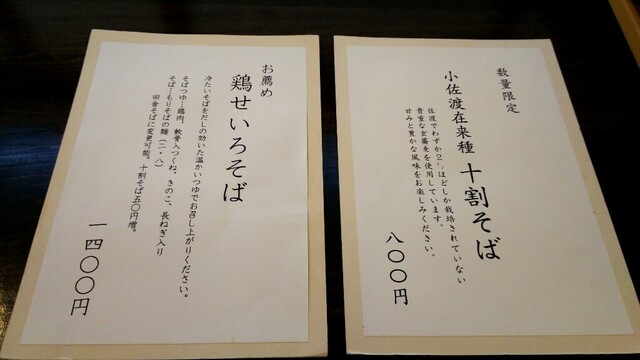 お薦め
鶏せいろそば
冷たいそばをだしの効いた温かいつゆでお召し上がりください。
そばつゆ…鶏肉、軟骨入つくね、きのこ、長ねぎ入り
そば…もりそばの麺（二・八）
田舎そばに変更可能。十割そば五〇円増。
一四〇〇円
数量限定
小佐渡在来種 十割そば
佐渡でわずか2㌧ほどしか栽培されていない
貴重な玄蕎麦を使用しています。
甘みと豊かな風味をお楽しみください。
八〇〇円